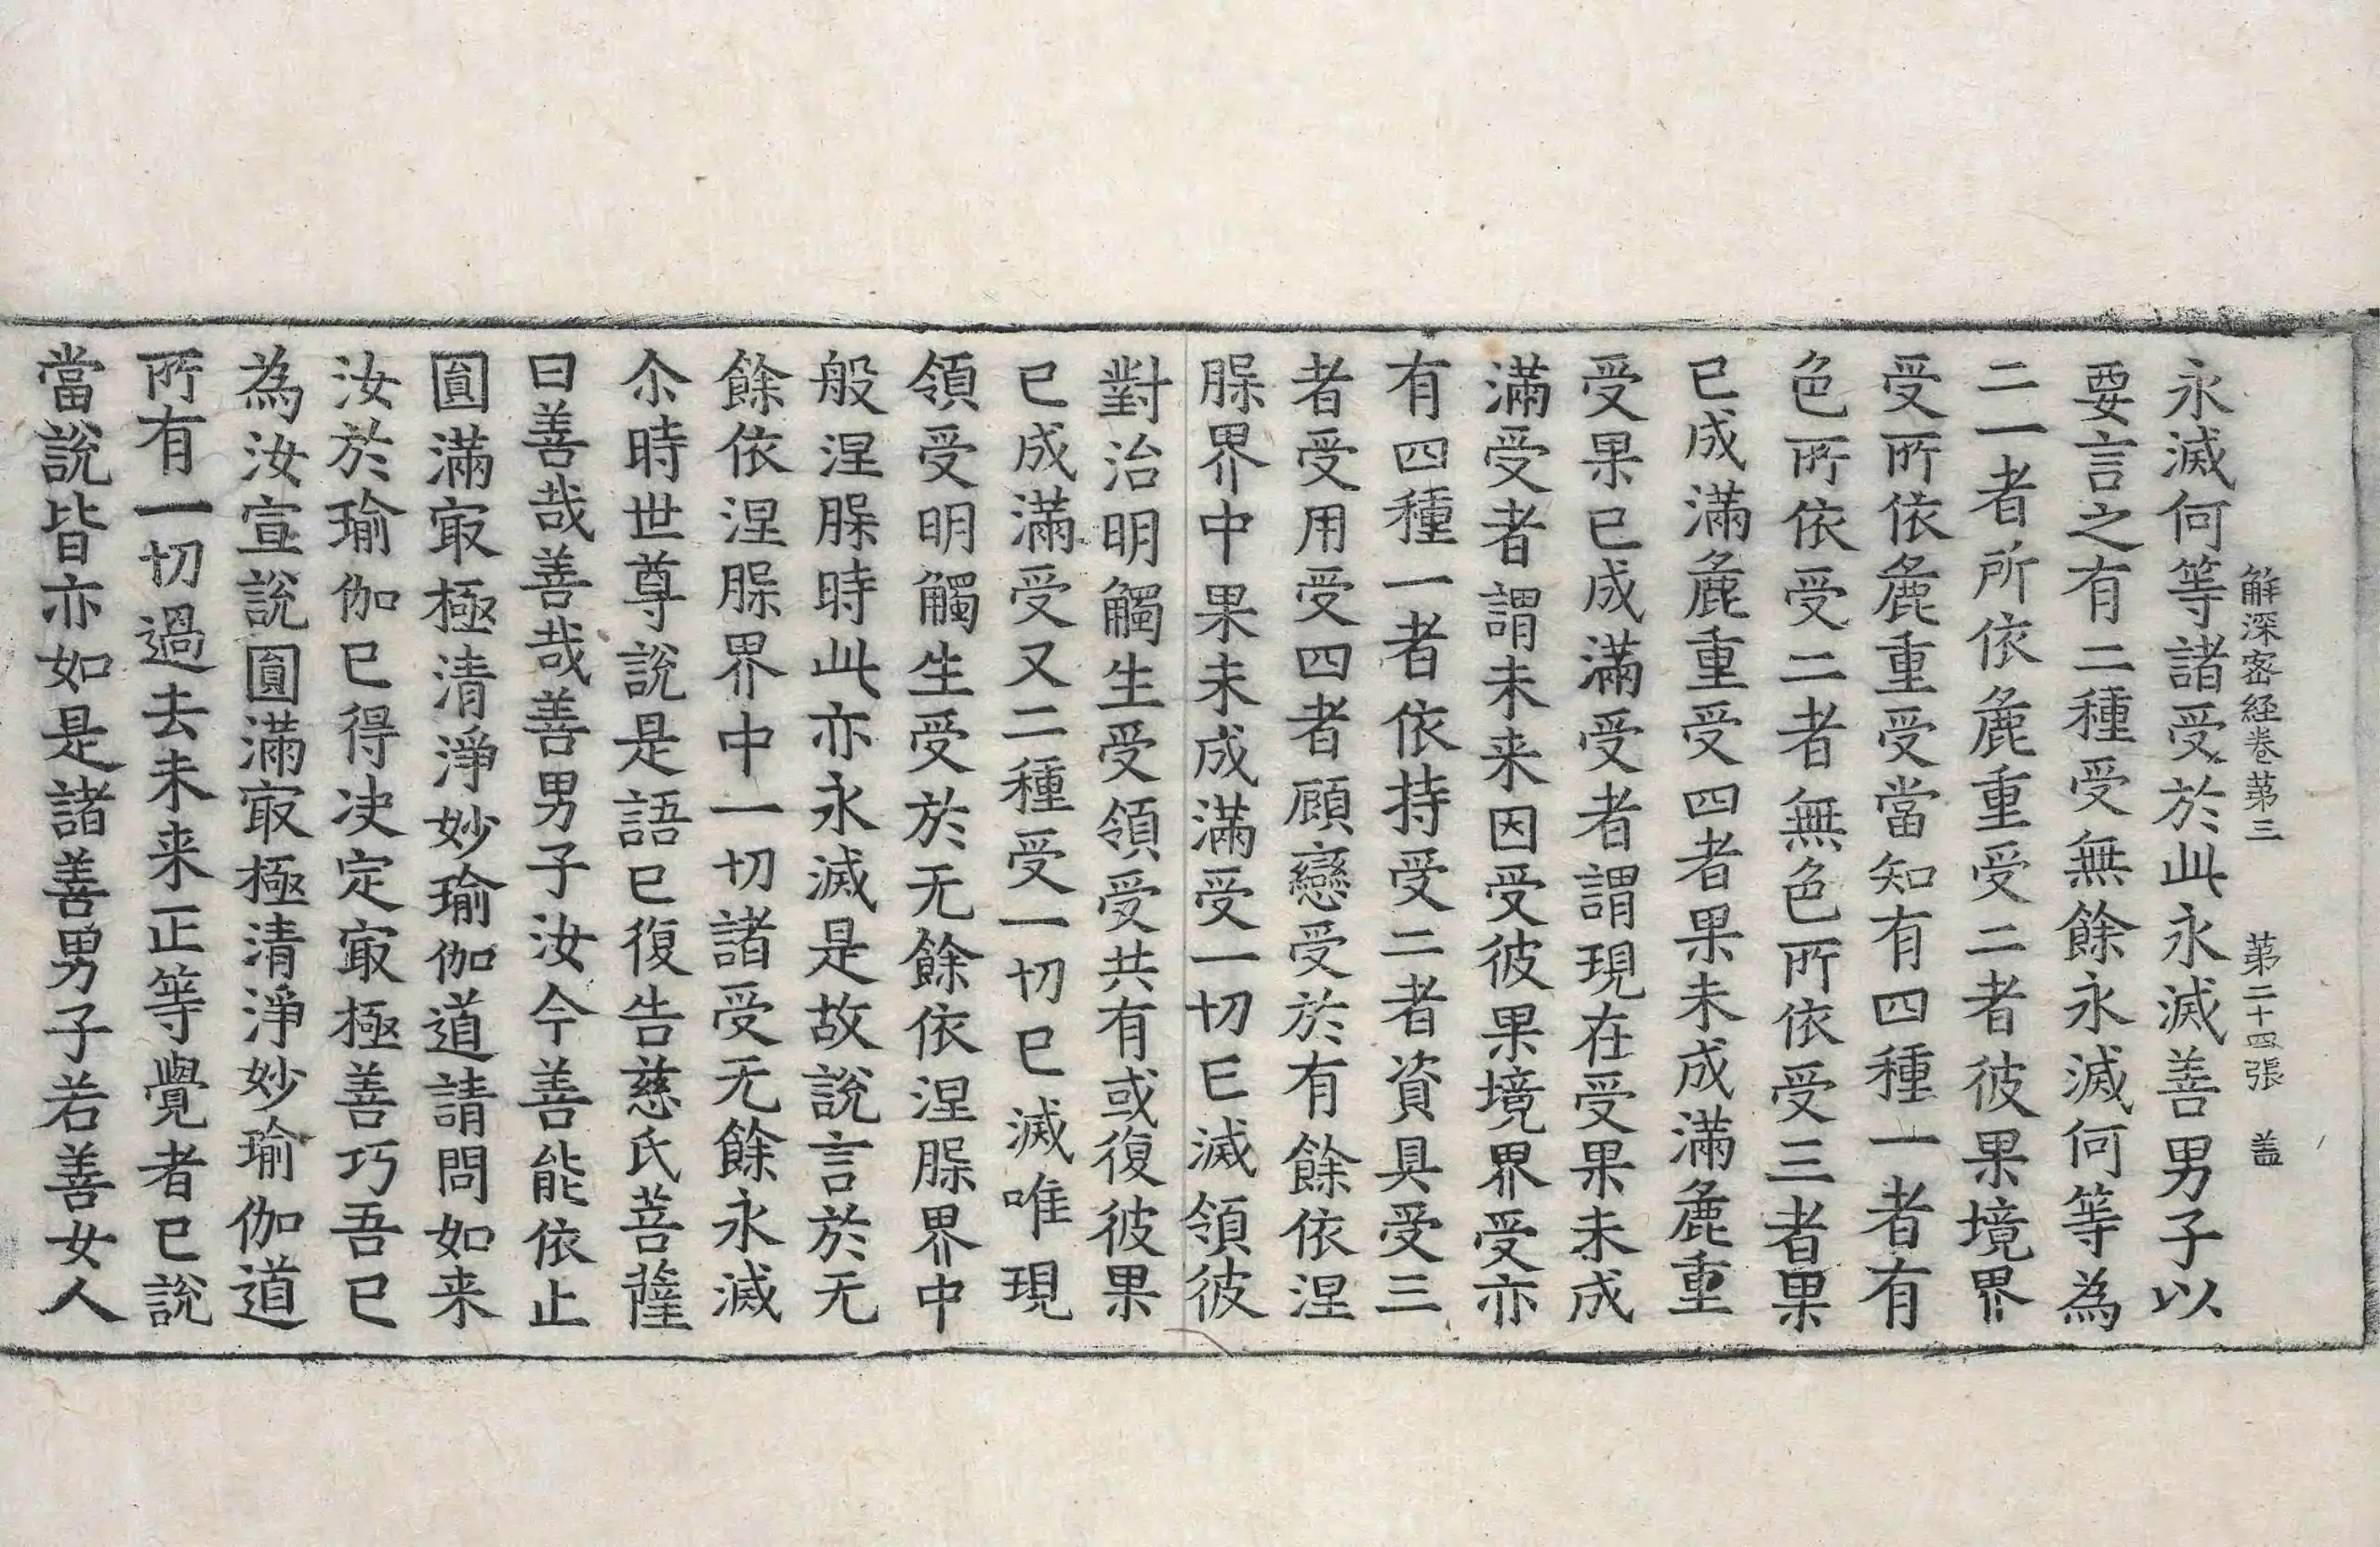 解深密経卷第三　第二十四張　盖
永滅何等諸受於此永滅善男子以
要言之有二種受無餘永滅何等為
二一者所依麁重受二者彼果境界
受所依麁重受當知有四種一者有
色所依受二者無色所依受三者果
已成滿麁重受四者果未成滿麁重
受果已成滿受者謂現在受果未成
滿受者謂未来因受彼果境界受亦
有四種一者依持受二者資具受三
者受用受四者顧戀受於有餘依涅
槃界中果未成滿受一切已滅領彼
對治明觸生受領受共有或復彼果
已成滿受又二種受一切已滅唯現
領受明觸生受於无餘依涅槃界中
般涅槃時此亦永滅是故說言於无
餘依涅槃界中一切諸受无餘永滅
尒時世尊說是語已復告慈氏菩薩
曰善哉善哉善男子汝今善能依止
圎滿㝡極清淨妙瑜伽道請問如来
汝於瑜伽已得决定㝡極善巧吾已
為汝宣說圎滿㝡極清淨妙瑜伽道
所有一切過去未来正等覺者已說
當說皆亦如是諸善男子若善女人